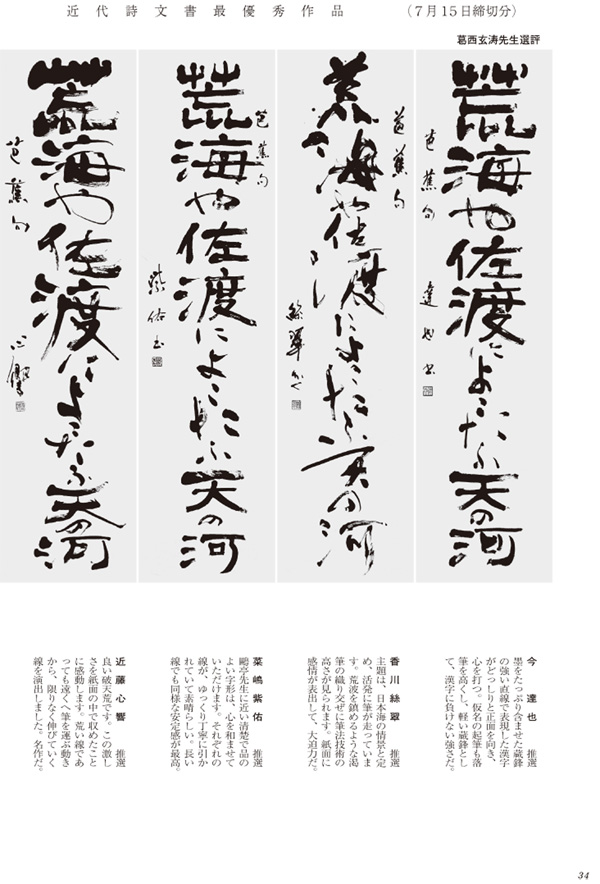 近代詩文書最優秀作品　（7月15日締切分）
葛西玄涛先生選評
荒海や佐渡によこたふ天の河
芭蕉句
達也書
荒海や佐渡によこたふ天の河
芭蕉句
絲翠かく
荒海や佐渡によこたふ天の河
芭蕉句
紫佑书
荒海や佐渡によこたふ天の河
芭蕉句
心響
今　達也　推選
墨をたっぷり含ませた蔵鋒
の強い直線で表現した漢字
がどっしりと正面を向き、
心を打つ。仮名の起筆も落
筆を高くし、軽い蔵鋒とし
て、漢字に負けない強さだ。
香川絲翠　推選
主題は、日本海の情景と定
め、活発に筆が走っていま
す。荒波を鎮めるような渇
筆の織り交ぜに筆法技術の
高さが見られます。紙面に
感情が表出して、大迫力だ。
菜嶋紫佑　推選
鷗亭先生に近い清楚で品の
よい字形は、心を和ませて
いただけます。それぞれの
線が、ゆっくり丁寧に引か
れていて素晴らしい。長い
線でも同様な安定感が最高。
近藤心響　推選
良い破天荒です。この激し
さを紙面の中で収めたこと
に感動します。荒い線であ
っても遠くへ筆を運ぶ動き
から、限りなく伸びていく
線を演出しました。名作だ。
34